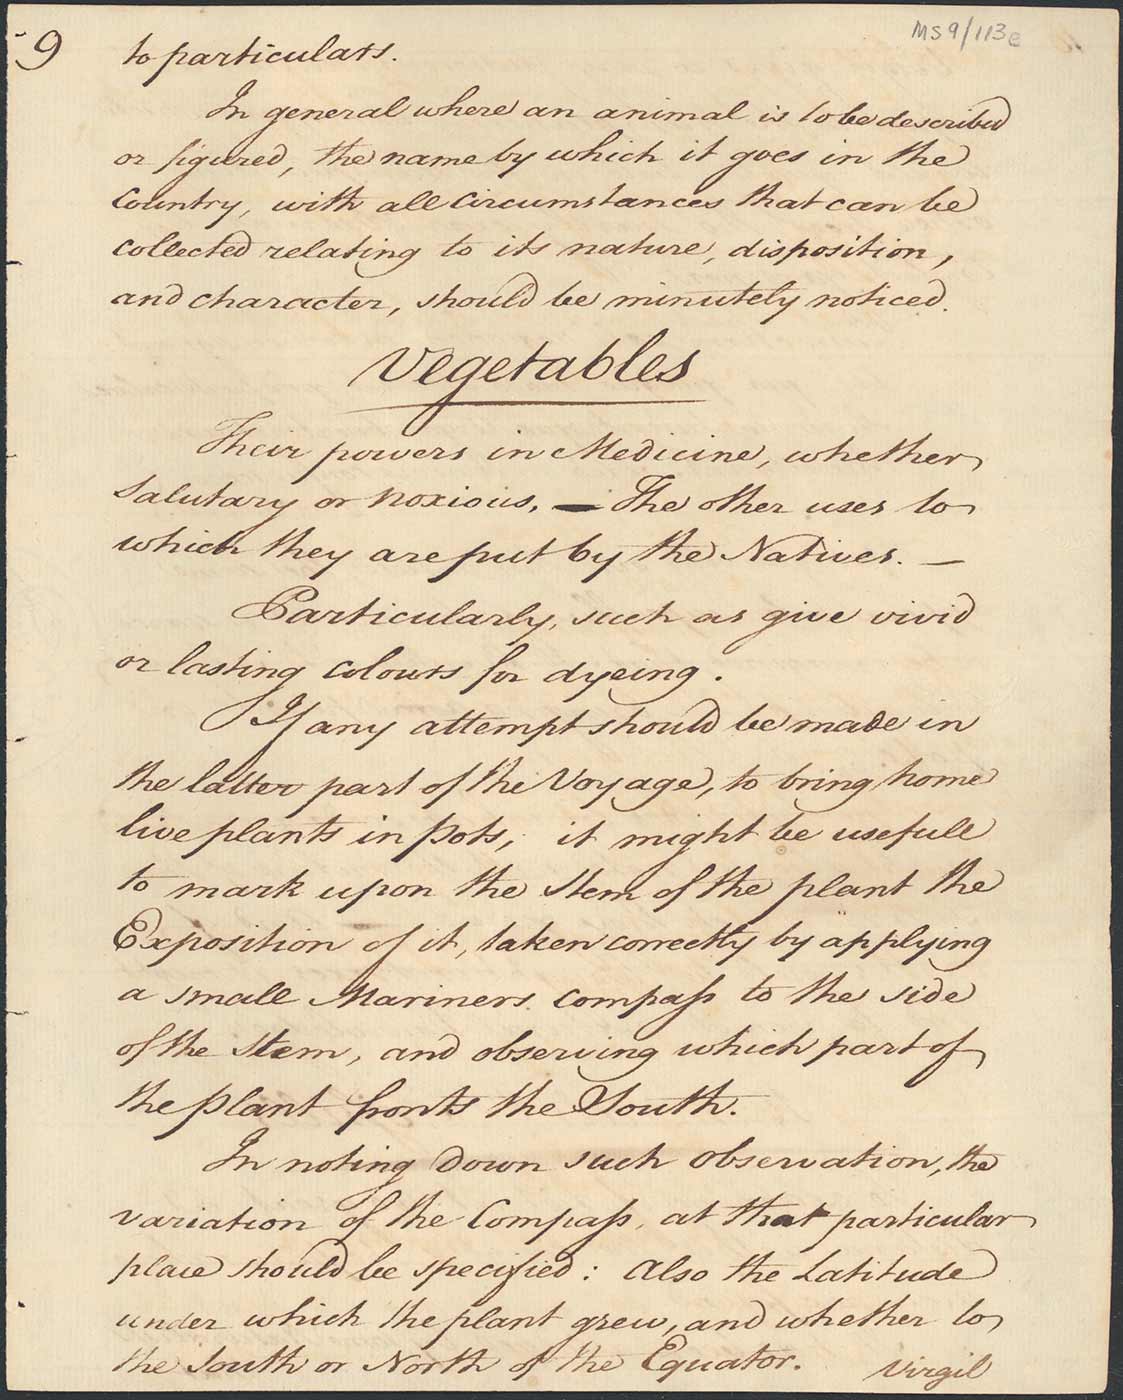 9
MS9/113e
to particulars.
In general where an animal is to be described
or figured, the name by which it goes in the
Country, with all circumstances that can be
collected relating to its nature, disposition,
and character, should be minutely noticed.
Vegetables
Their powers in Medicine, whether
Salutary or noxious. — The other uses to
which they are put by the Natives. —
Particularly, such as give vivid
or lasting colours for dyeing.
If any attempt should be made in
the latter part of the Voyage, to bring home
live plants in pots, it might be usefull
to mark upon the stem of the plant the
Exposition of it, taken correctly by applying
a small Mariners compaſs to the side
of the stem, and observing which part of
the plant fronts the South.
In noting down such observation, the
variation of the Compaſs, at that particular
place should be specified: Also the Latitude
under which the plant grew, and whether to
the South or North of the Equator.
Virgil